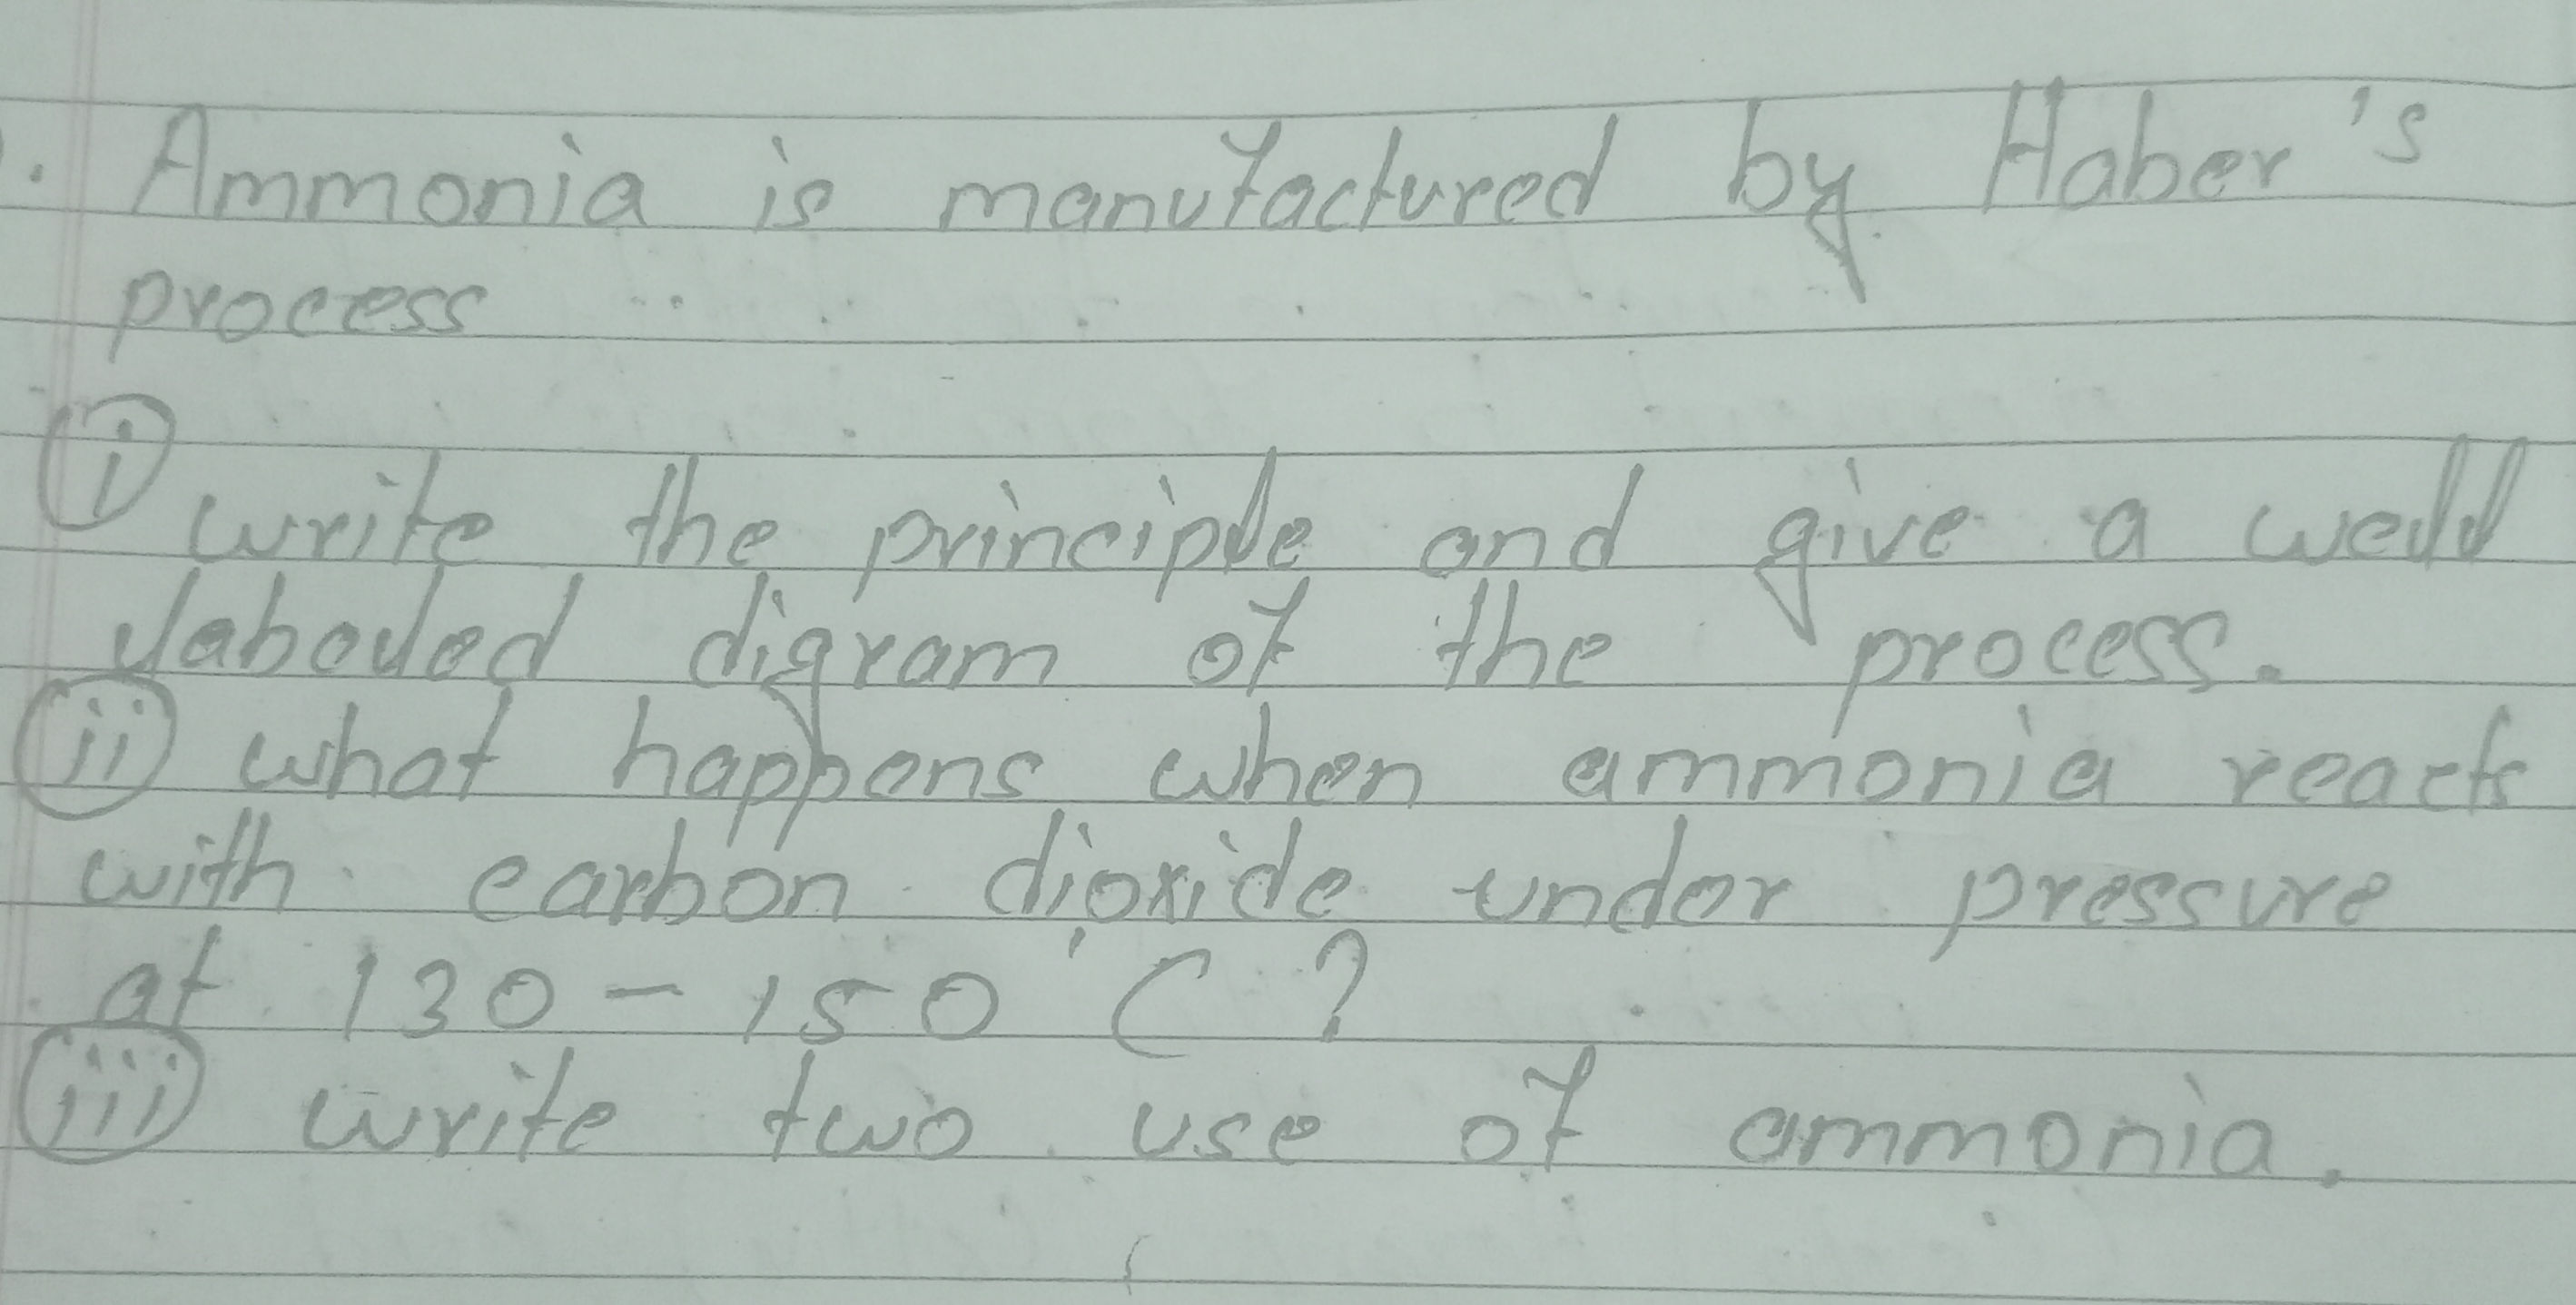 . Ammonia is manufactured by Haber's
process
i write the principle and give a well
labeled digram of the process.
ii what happens when ammonia reacts
with carbon dioxide under pressure
at 130-150°C?
iii write two use of ammonia.